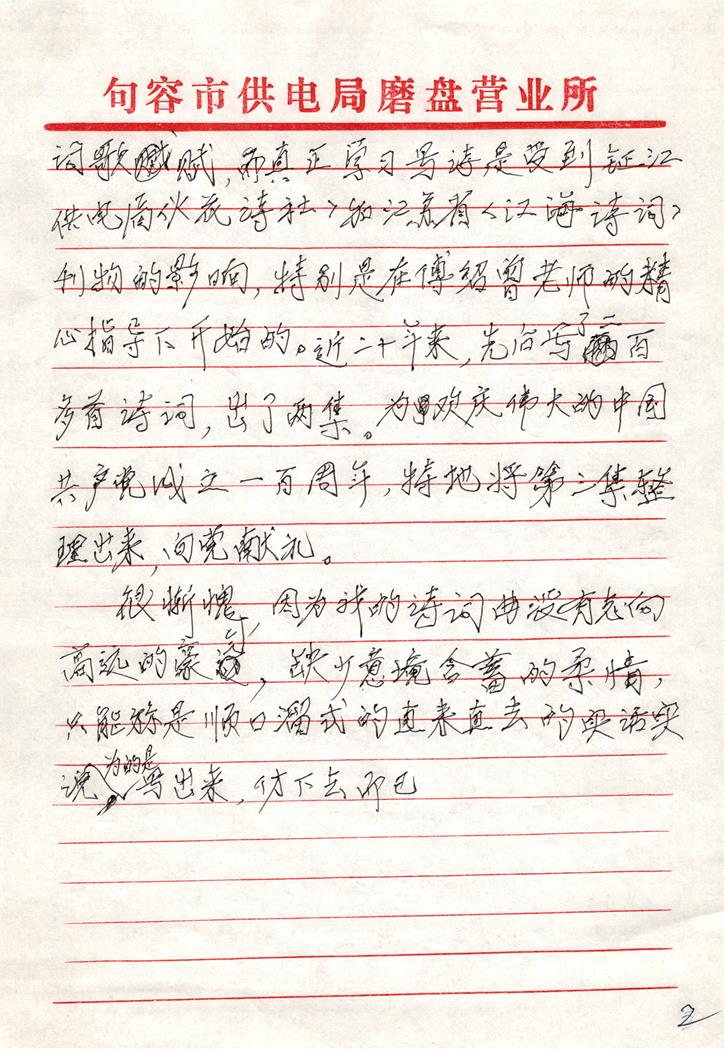 句容市供电局磨盘营业所
词歌赋，而真正学习写诗是受到镇江
供电局《火花诗社》和江苏省《江海诗词》
刊物的影响，特别是在傅绍曾老师的精
心指导下开始的。近二十年来，先后写了二百
多首诗词，出了两集。为欢庆伟大的中国
共产党成立一百周年，特地将第三集整
理出来，向党献礼。
很惭愧，因为我的诗词曲没有志向
高远的豪气，缺少意境含蓄的柔情，
只能称是顺口溜式的直来直去的实话实
说，为的是写出来，传下去而已
2